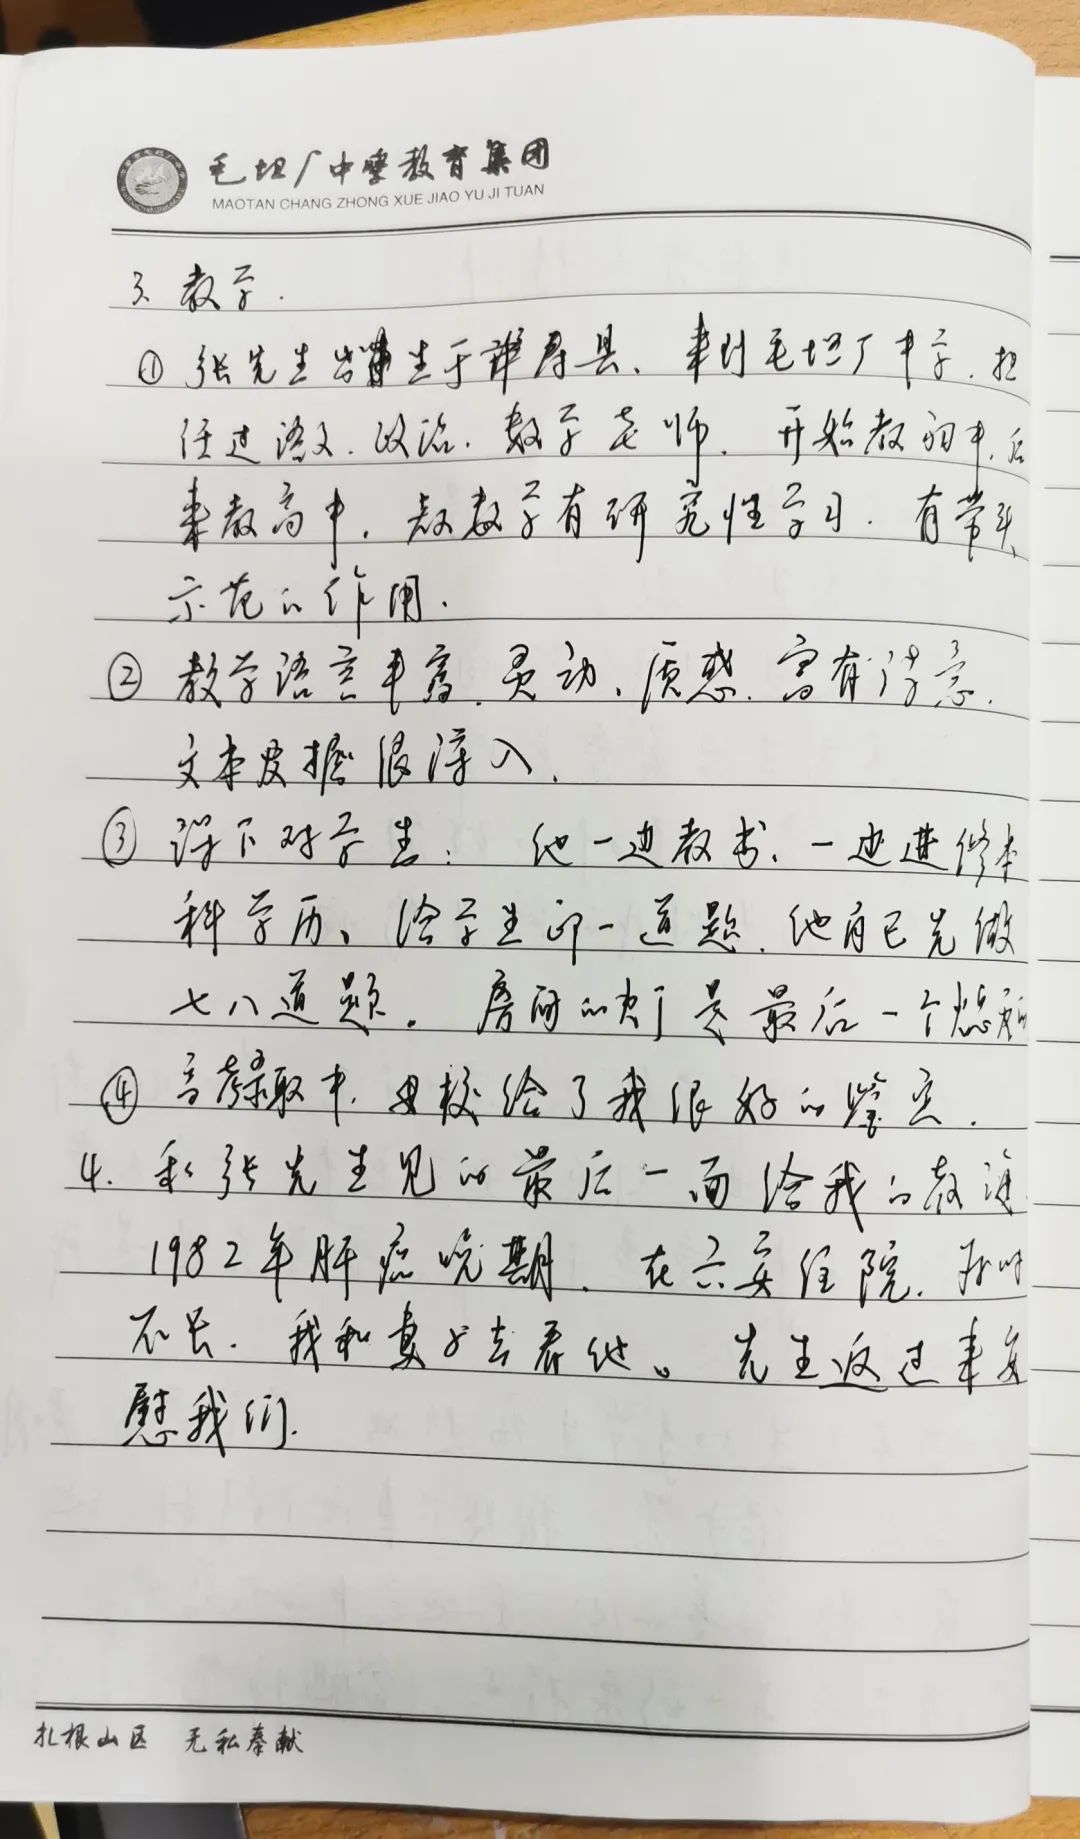 毛坦厂中学教育集团
MAOTAN CHANG ZHONG XUE JIAO YU JI TUAN
3、教学.
① 张先生出生于寿县、来到毛坦厂中学.担
任过语文.政治.数学老师.开始教初中.后
来教高中.教数学有研究性学习.有带头
示范的作用.
② 教学语言丰富.灵动、质感.富有诗意.
文本发掘很深入.
③ 课下对学生:他一边教书、一边进修本
科学历、给学生印一道题.他自己先做
七八道题。房间的灯是最后一个熄
④ 高考录取中.母校给了我很好的鉴定.
4.和张先生见的最后一面给我的教诲.
1982年肝癌晚期.在六安住院.
不长.我和妻子去看他。先生返过来安
慰我们.
扎根山区 无私奉献